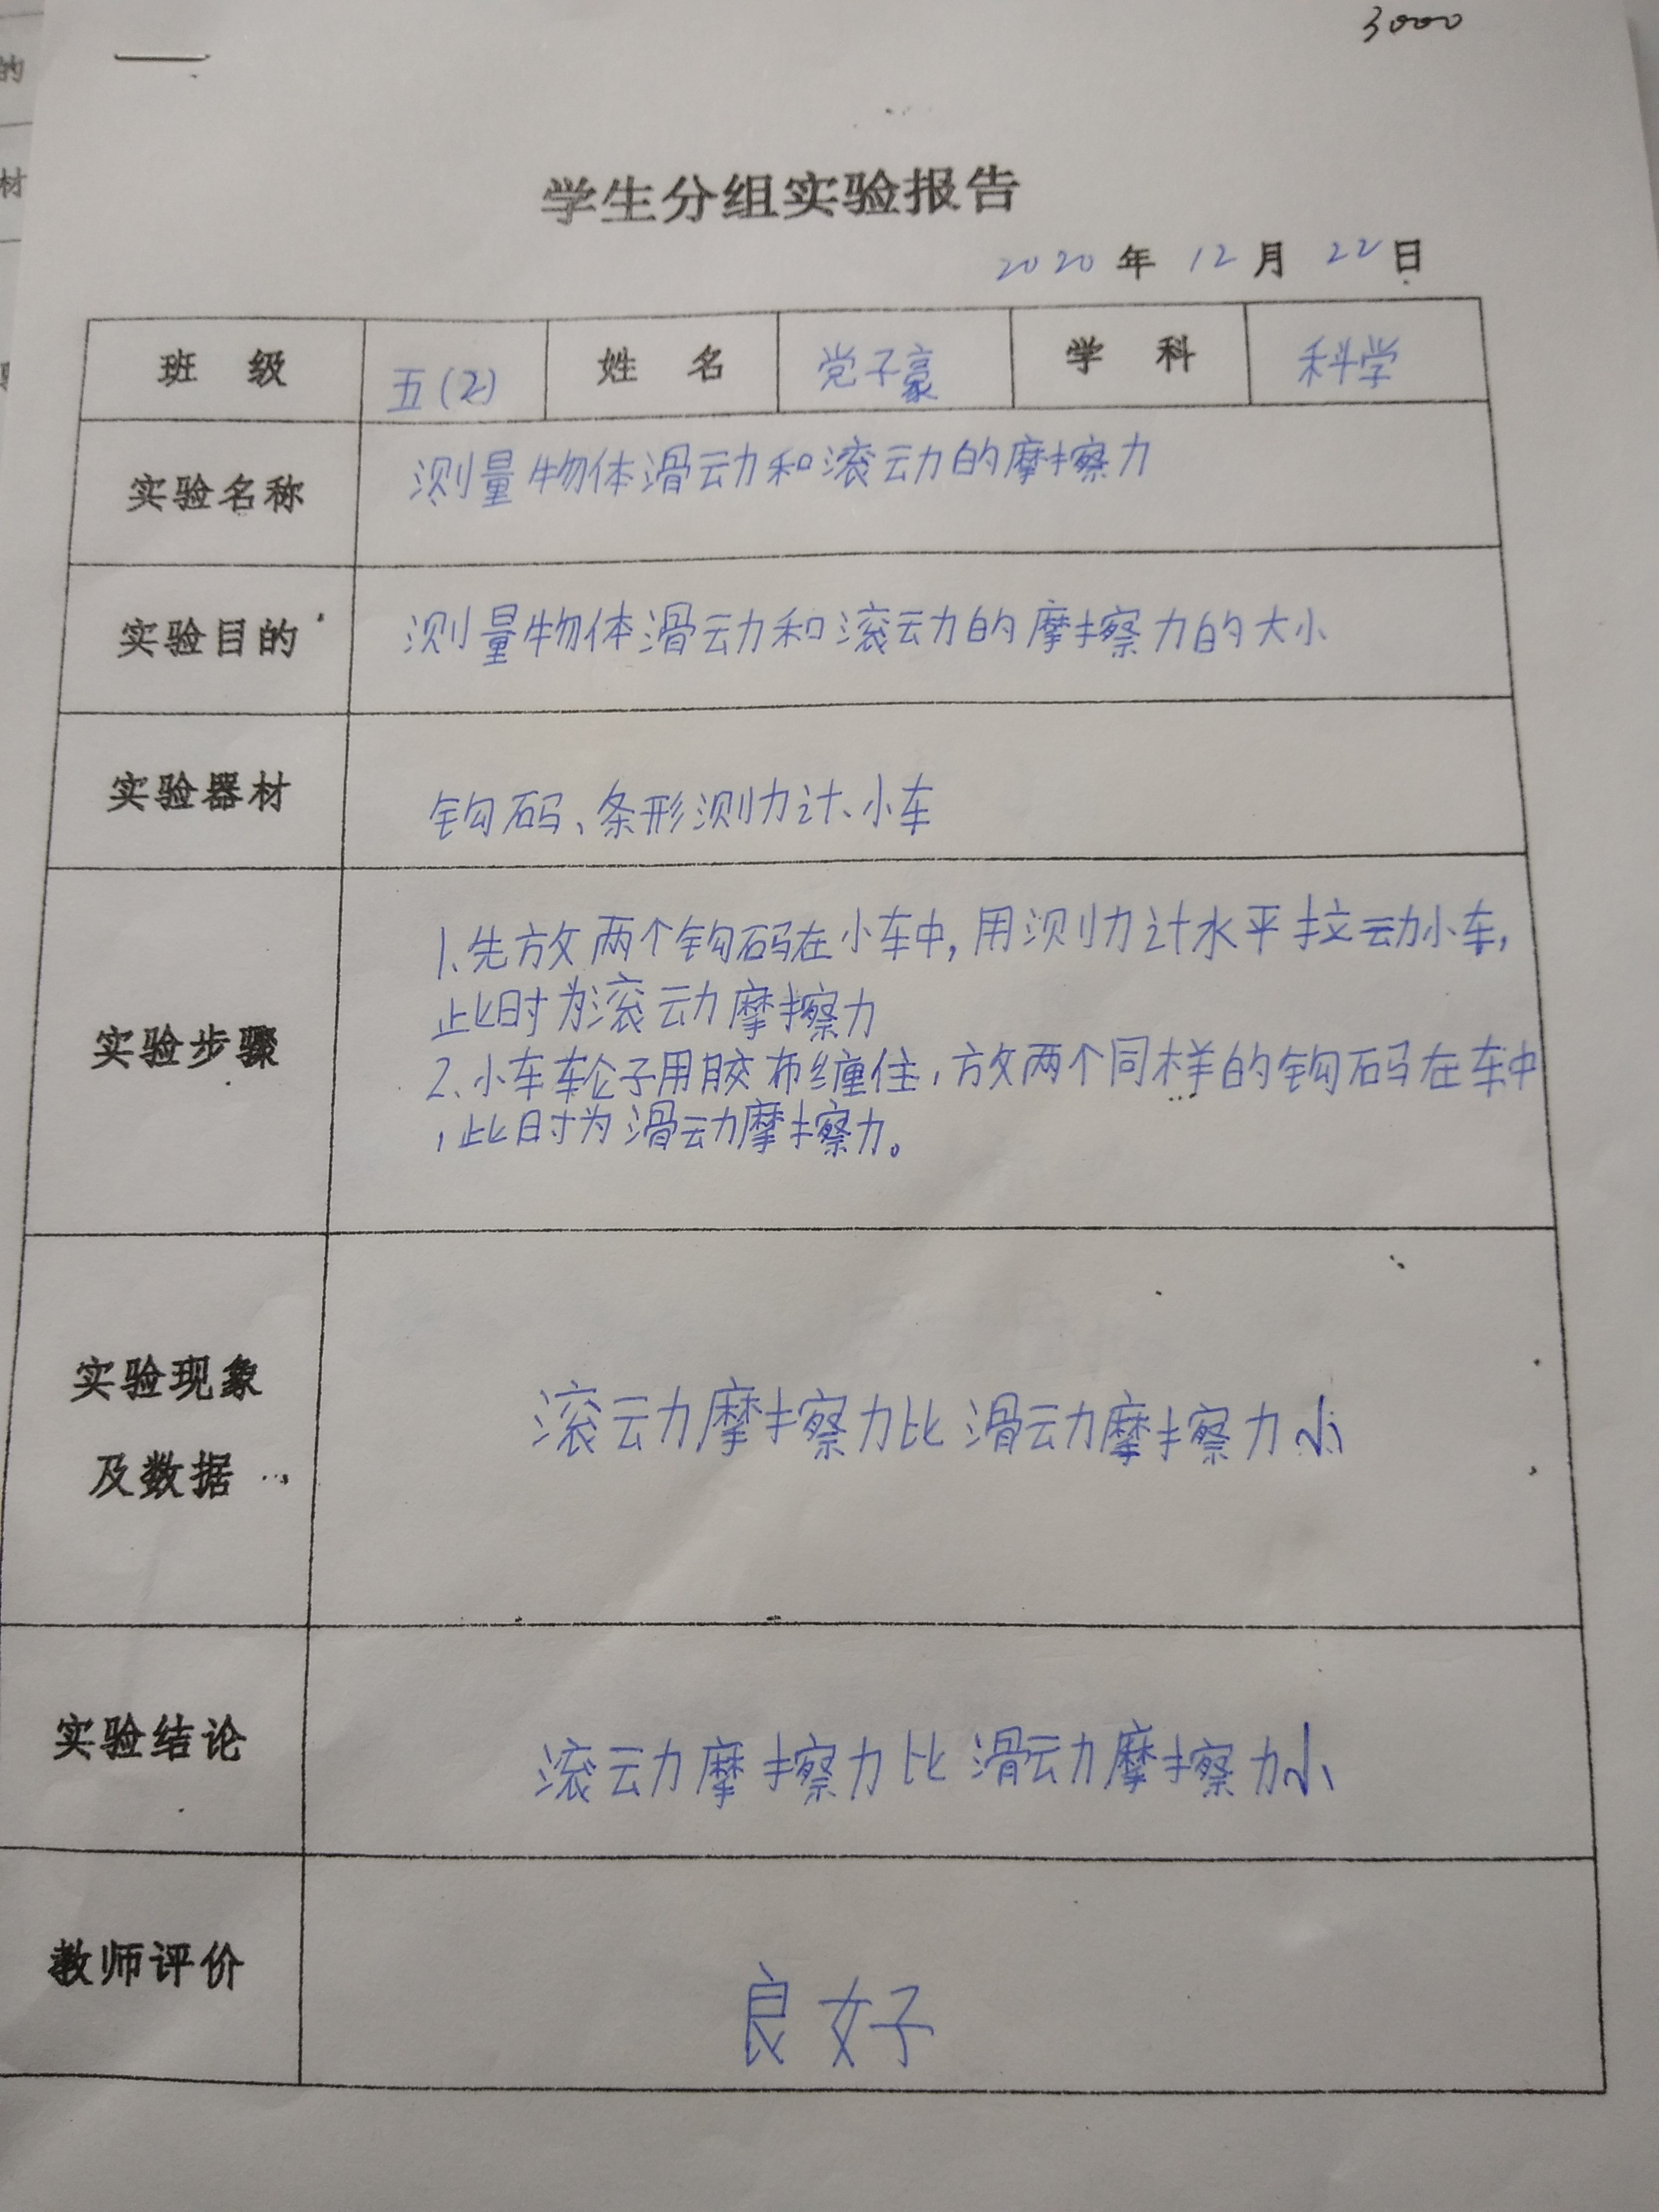 3000
学生分组实验报告
2020 年 12 月 22 日
班 级 五(2) 姓 名 党子豪 学 科 科学
实验名称 测量物体滑动和滚动的摩擦力
实验目的 测量物体滑动和滚动的摩擦力的大小
实验器材 钩码、条形测力计、小车
实验步骤
1.先放两个钩码在小车中,用测力计水平拉动小车,
此时为滚动摩擦力
2.小车车轮子用胶布缠住,放两个同样的钩码在车中
,此时为滑动摩擦力。
实验现象
及数据
滚动摩擦力比滑动摩擦力小
实验结论 滚动摩擦力比滑动摩擦力小
教师评价 良好
的
材